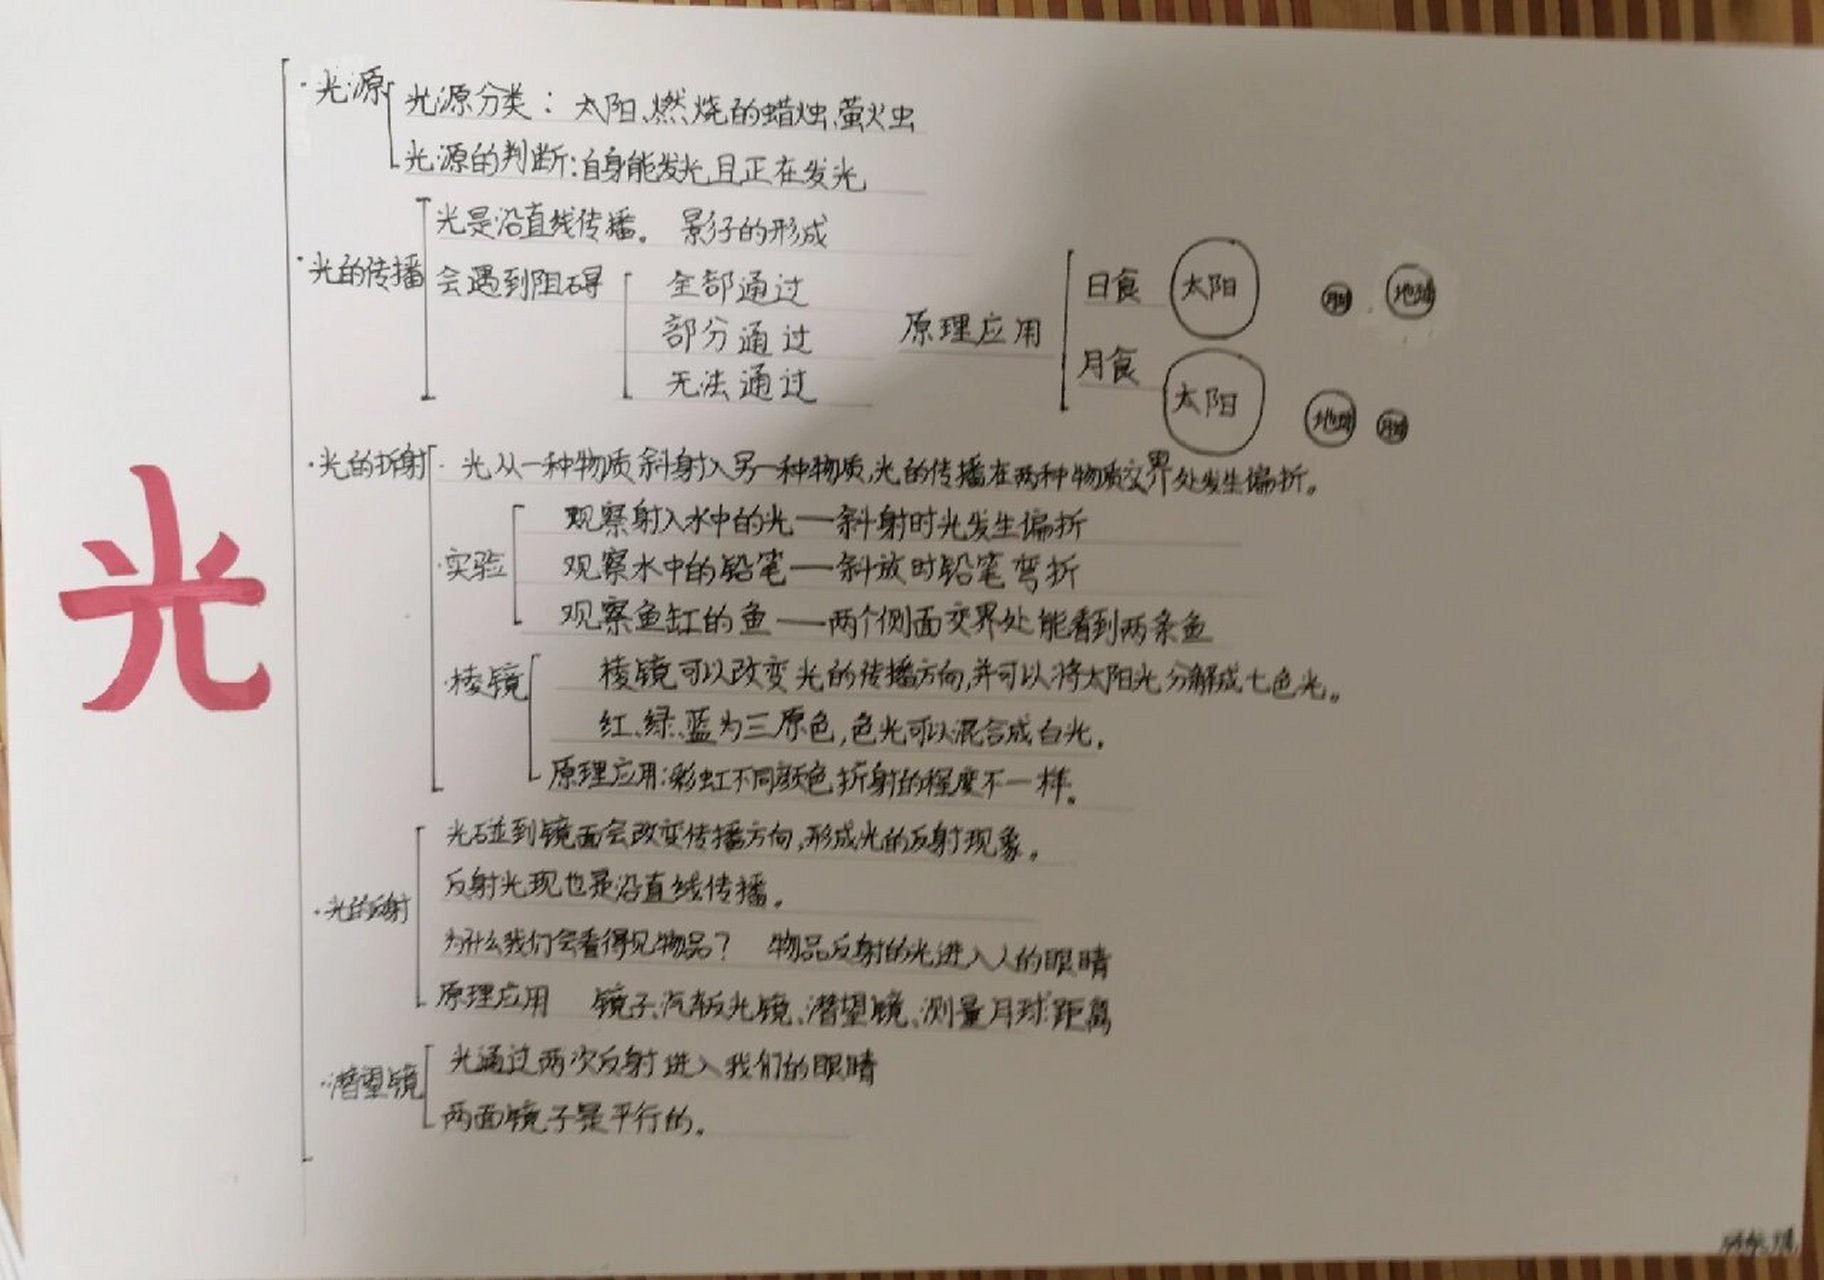 光
·光源
光源分类：太阳、燃烧的蜡烛、萤火虫
光源的判断：自身能发光且正在发光
·光的传播
光是沿直线传播。 影子的形成
会遇到阻碍
全部通过
部分通过
无法通过
原理应用
日食 太阳 月球 地球
月食 太阳 地球 月球
·光的折射
·光从一种物质斜射入另一种物质,光的传播在两种物质交界处发生偏折。
·实验
观察射入水中的光——斜射时光发生偏折
观察水中的铅笔——斜放时铅笔弯折
观察鱼缸的鱼——两个侧面交界处能看到两条鱼
·棱镜
棱镜可以改变光的传播方向,并可以将太阳光分解成七色光。
红、绿、蓝为三原色,色光可以混合成白光。
原理应用:彩虹不同颜色折射的程度不一样。
·光的反射
光碰到镜面会改变传播方向,形成光的反射现象。
反射光现也是沿直线传播。
为什么我们会看得见物品？ 物品反射的光进入人的眼睛
原理应用 镜子、汽车反光镜、潜望镜、测量月球距离
·潜望镜
光通过两次反射进入我们的眼睛
两面镜子是平行的。